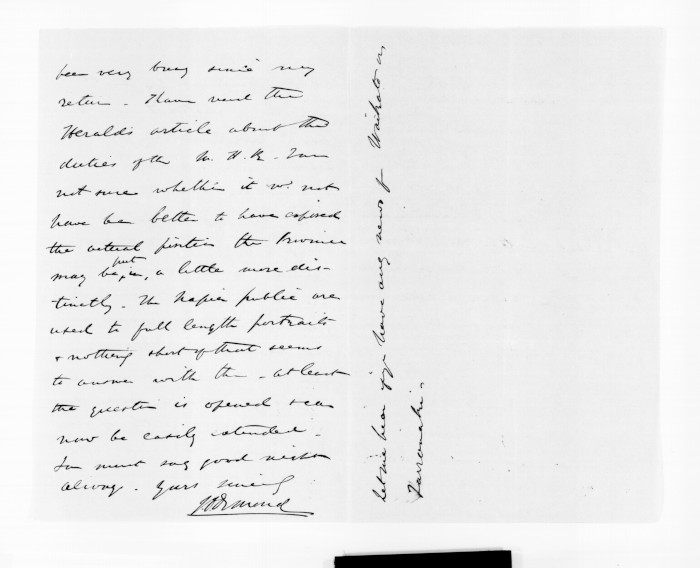 been very busy since my
return. Have read the
Heralds article about the
duties of the M. H. R. I am
not sure whether it wd. not
have be better to have exposed
the actual position the Province
may be put in, a little more dis-
tinctly. The Napier public are
used to full length portraits
& nothing short of that seems
to answer with them - at least
the question is opened & can
now be easily extended.
I must say good night
always. Yours sincerely
JD Ormond
Let me hear if you have any news of Waikato or
Tarranaki.